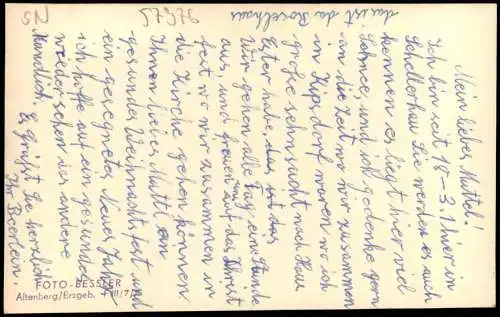 Mein liebes Muttel!
Ich bin seit 18-3. hier in
Schellerhau Sie werden es auch
kennen es liegt hier viel
Schnee, und ich gedenke gern
an die Zeit wo wir zusammen
in Kipsdorf waren wo ich
große sehnsucht nach Haus
habe, das ist das
Wir gehen alle Tag eine Stunde
aus, und freuen uns auf das Christ
wo wir zusammen
die Kirche gehen können.
Ihnen liebes Muttel ein
gesundes Weihnachtsfest und
ein gesegnetes Neues Jahr
ich hoffe auf ein gesundes
wiedersehen das andere
mündlich. Es Grüßt Sie herzlich
Ihr
das ist da
FOTO-BESSLER
Altenberg/Erzgeb.